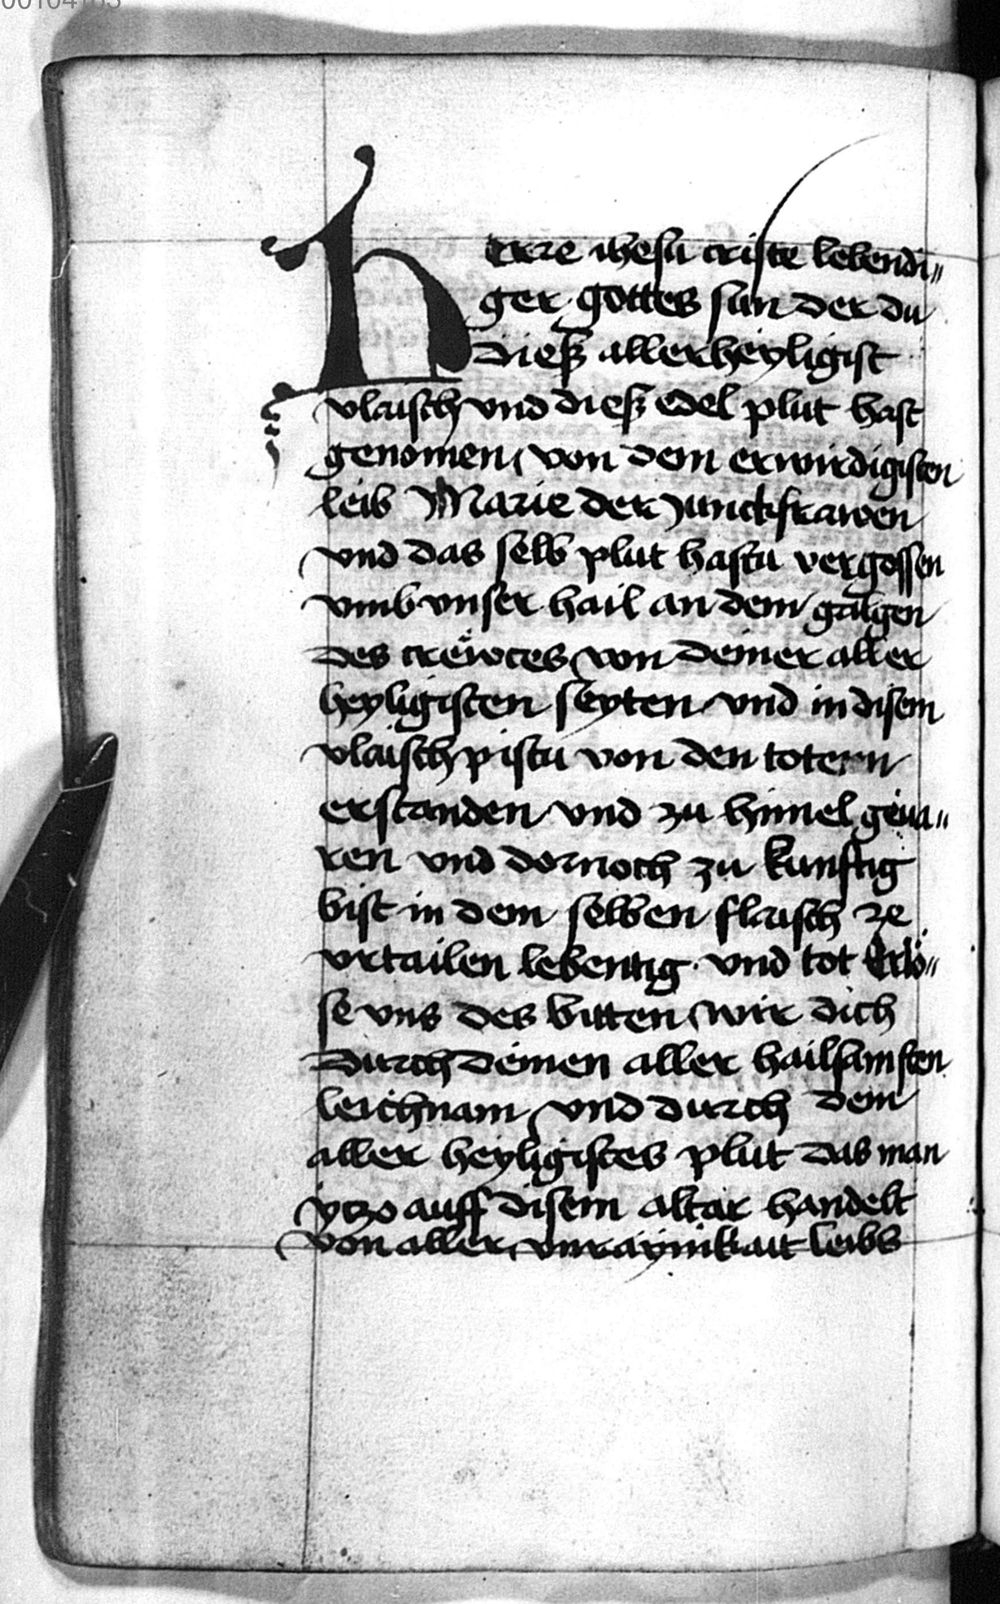 Herre ihesu criste lebendi„
ger gottes sun der du
dieß allerheyligist
vlaisch vnd dieß edel plut hast
genomen von dem erwirdigisten
leib Marie der Junckfrawen
vnd das selb plut hastu vergossen
vmb vnser hail an dem galgen
des crewtes von deiner aller
heyligisten seyten vnd in disem
vlaisch pistu von den totern
erstanden vnd zu himel geua„
ren vnd dornoch zu kunftig
bist in dem selben flaisch ze
vrtailen lebentig vnd tot Erlö„
se vns des bitten wir dich
durch deinen aller hailsamsten
leichnam vnd durch dein
aller heyligistes plut das man
ytzo auff disem altar handelt
von aller vnraynikait leibs